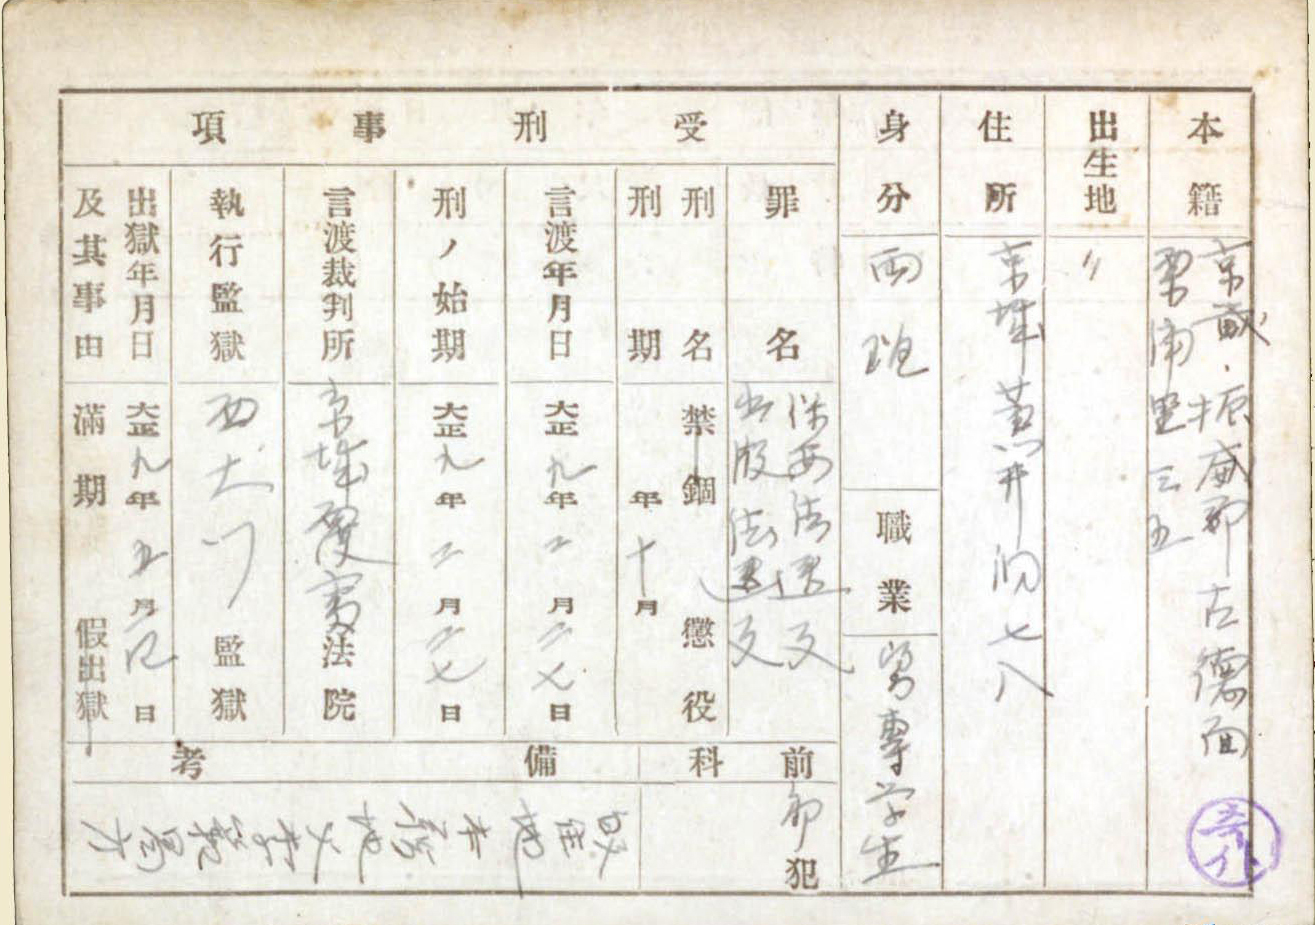 本籍
京畿・振威郡古德面
栗浦里三五
出生地
〃
住所
京城黄井洞七八
身分
両班
職業
醫專学生
受刑事項
罪名
保安法違反
出版法違反
刑名
禁錮 懲役
刑期
年十月
言渡年月日
大正九年二月二七日
刑ノ始期
大正九年二月二七日
言渡裁判所
京城覆審法院
執行監獄
西大門監獄
出獄年月日
及其事由
大正九年四月日
滿期 假出獄
前科
初犯
備考
住地本籍地父李
方